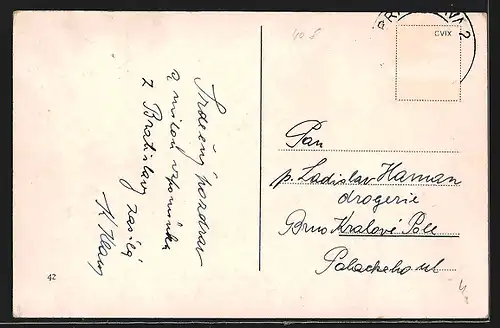 Srdečný pozdrav
a milou vzpomínku
z Bratislavy zasílá
40 §
CVIX
2
Pan
p. Ladislav Haman
drogerie
Brno Kralové Pole
Palackeho ul
42